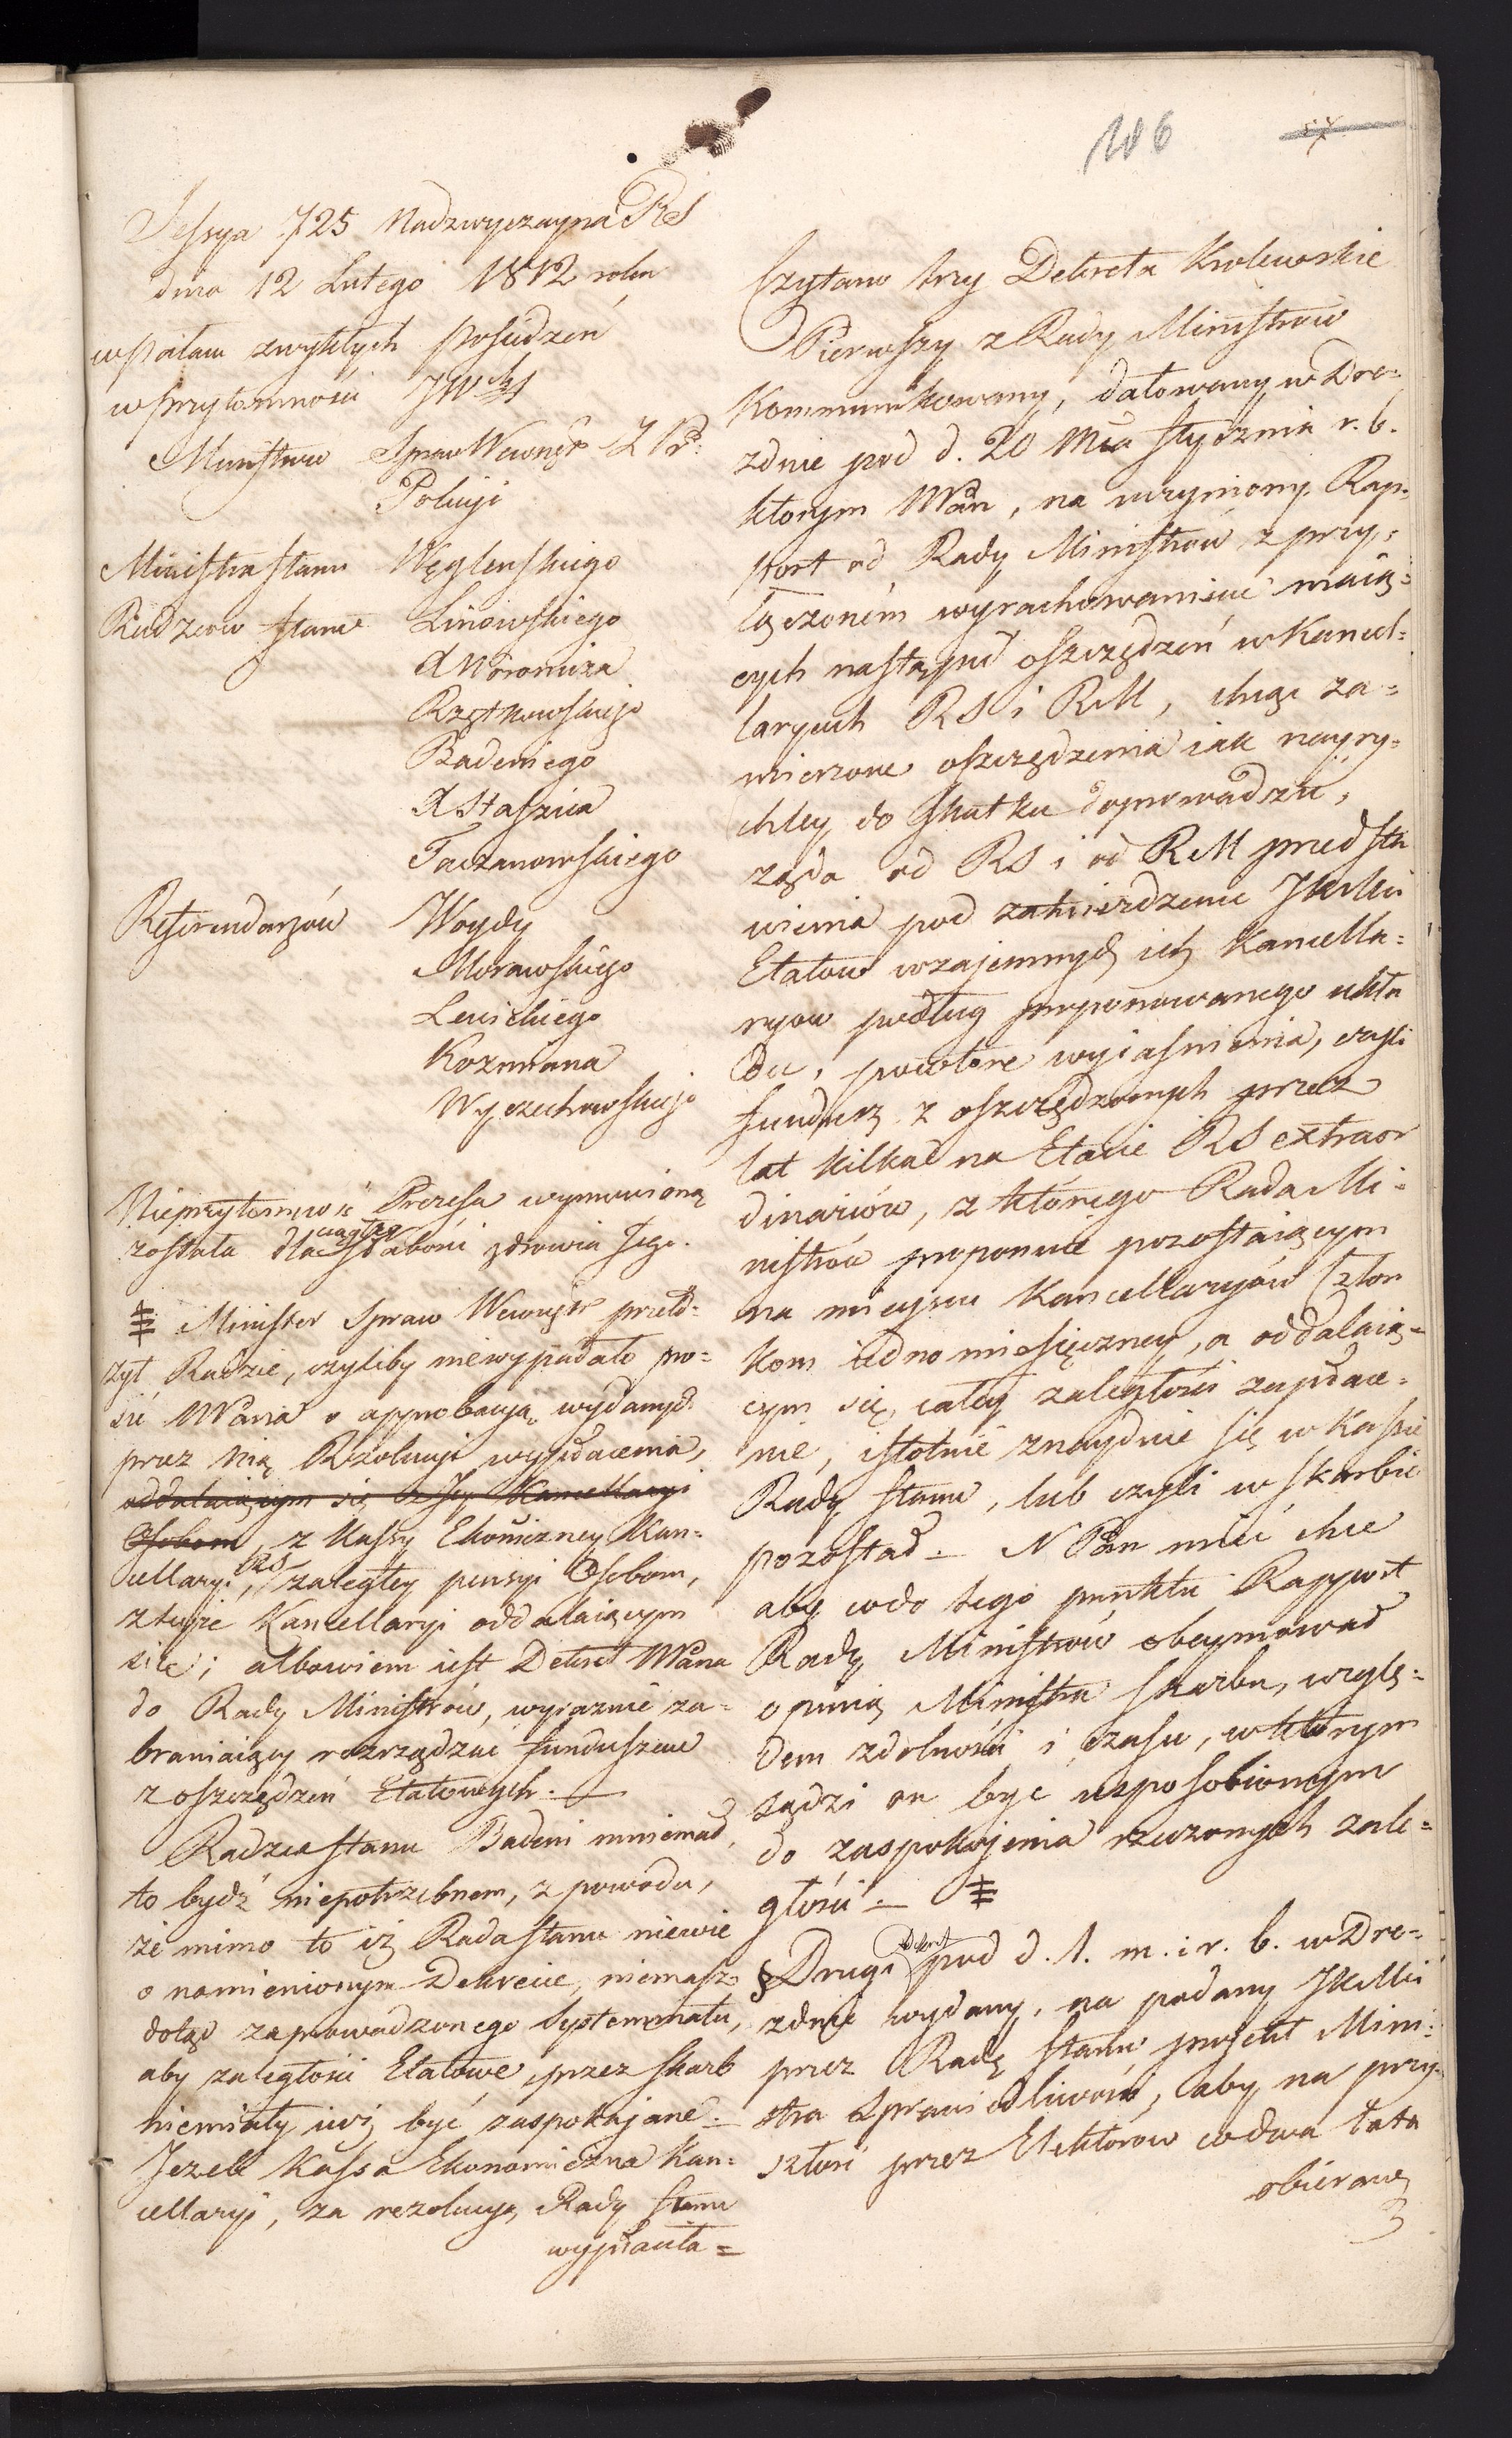 106
Sessya 725 Nadzwyczayna RS
dnia 12 Lutego 1812 roku
w pałacu zwykłych posiedzeń
w przytomności JW
Ministrów Spraw Wewnętr Z Pr:
Policyi
Ministra stanu Węglenskiego
Radzców stanu Linowskiego
X Woronicza
Rzętkowskiego
Badeniego
X Staszica
Taczanowskiego
Referendarzów Woydy
Morawskiego
Lewickiego
Kozmiana
Wyczechowskiego
Nieprzytomność Prezesa wymówioną
została dla ciągłey słabości zdrowia Jego.
Minister Spraw Wewnętr przeło=
żył Radzie, czyliby niewypadało pro=
sić NPana o approbacyą wydanych
przez nią Rezolucyi wypłacenia,
oddalaiącym się z Jey Kancellaryi
Osobom, z Kassy Ekomiczney Kan=
cellaryi RS, zaległey pensyi Osobom,
z teyże Kancellaryi oddalaiącym
się; albowiem iest Dekret NPana
do Rady Ministrów, wyraznie za=
braniaiący rozrządzać funduszem
z oszczędzeń Etatowych. —
Radzca stanu Badeni mniemał,
to bydź niepotrzebnem, z powodu,
że mimo to iż Rada stanu niewie
o namienionym Dekrecie, niemasz
dotąd zaprowadzonego Systemmatu,
aby zaległości Etatowe, przez Skarb
niemiały iuż być zaspokajane. —
Jeżeli Kassa Ekonomiczna Kan=
cellaryi, za rezolucyą Rady Stanu
wypłaciła=
Czytano trzy Dekreta Krolewskie
Pierwszy z Rady Ministrów
Kommunikowany, datowany w Dre=
znie pod d. 20 Mca Stycznia r. b.
ktorym NPan, na uczyniony Rap=
port od Rady Ministrów z przy=
łączoném wyrachowaniem maią=
cych nastąpić oszczędzeń w Kancel=
laryach RS i RM, chcąc za=
mierzone oszczędzenia iak nayry=
chley do skutku doprowadzić,
żąda od RS i od RM przedsta
wienia pod zatwierdzenie JKMci
Etatów wzajemnych ich Kancella=
ryow podług proponowanego ukła
du, powtóre wyiaśnienia, czyli
fundusz z oszczędzonych przez
lat kilka na Etacie RS extraor
dinariów, z którego Rada Mi=
nistrów proponuie pozostaiącym
na mieyscu Kancellaryów Człon
kom iednomiesięczney, a oddalaią=
cym się całey zaległości zapłace=
nie, istotnie znayduie się w Kassie
Rady stanu, lub czyli w skarbie
pozostał — N Pan mieć chce
aby codo tego punktu Rapport
Rady Ministrów obeymował
opinią Ministra Skarbu, wzglę=
dem zdolności i czasu, w którym
sądzi on być usposobionym
do zaspokojenia rzeczonych zale=
głości —
Drugi Dekret pod d. 1. m. i r. b. w Dre=
znie wydany, na podany JKMci
przez Radę stanu projekt Mini=
stra Sprawiedliwości, aby na przy=
szłość przez Elektorow co dwa lata
obierane